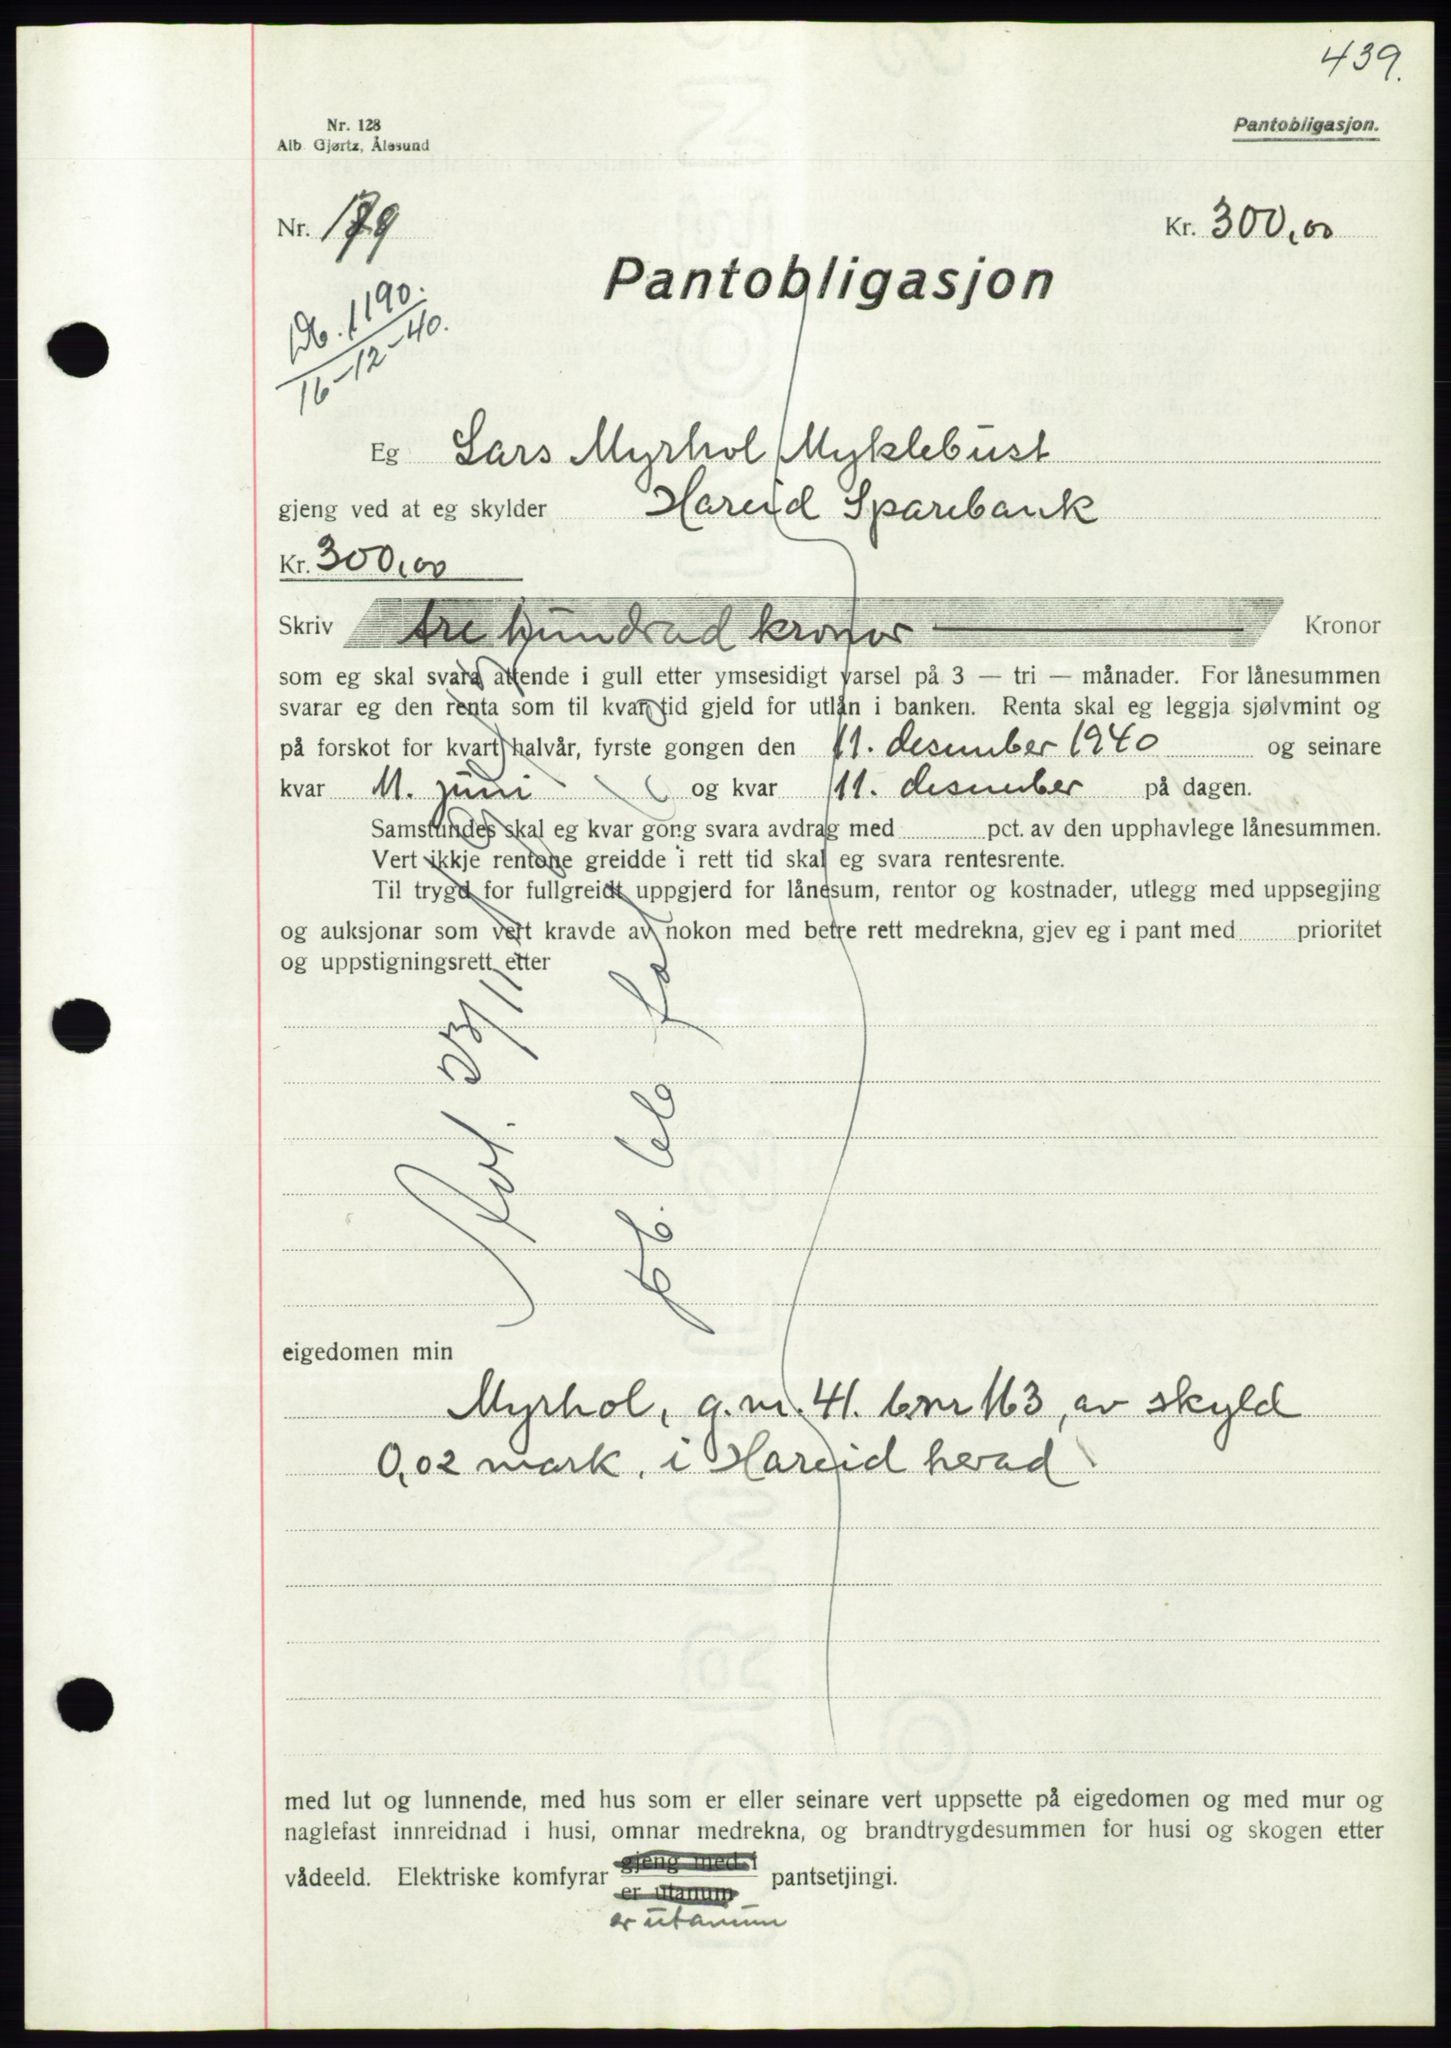 439.
Nr. 128
Alb. Gjørtz, Ålesund
Pantobligasjon.
Nr. 189
Kr. 300,00
Pantobligasjon
Db. 1190.
16-12-40.
Eg Lars Myrhol Myklebust
gjeng ved at eg skylder Hareid Sparebank
Kr. 300,00
Skriv tre hundrad kronor Kronor
som eg skal svara attende i gull etter ymsesidigt varsel på 3 — tri — månader. For lånesummen
svarar eg den renta som til kvar tid gjeld for utlån i banken. Renta skal eg leggja sjølvmint og
på forskot for kvart halvår, fyrste gongen den 11. desember 1940 og seinare
kvar 11. juni og kvar 11. desember på dagen.
Samstundes skal eg kvar gong svara avdrag med pct. av den upphavlege lånesummen.
Vert ikkje rentone greidde i rett tid skal eg svara rentesrente.
Til trygd for fullgreidt uppgjerd for lånesum, rentor og kostnader, utlegg med uppsegjing
og auksjonar som vert kravde av nokon med betre rett medrekna, gjev eg i pant med prioritet
og uppstigningsrett etter
eigedomen min
Myrhol, g.nr. 41. b.nr 163, av skyld
0,02 mark, i Hareid herad
med lut og lunnende, med hus som er eller seinare vert uppsette på eigedomen og med mur og
naglefast innreidnad i husi, omnar medrekna, og brandtrygdesummen for husi og skogen etter
vådeeld. Elektriske komfyrar gjeng med i pantsetjingi.
er utanum
er utanum